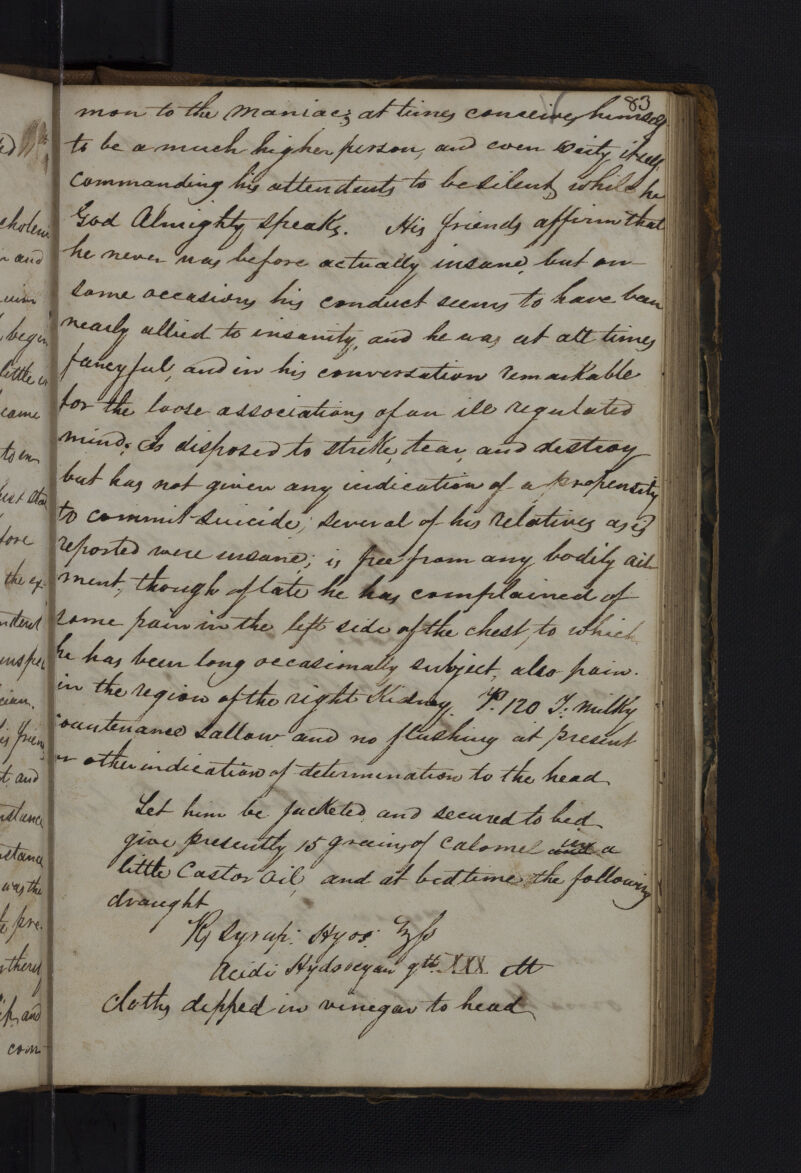 83
mon to the maniac; at times conceives himself
to be a much higher person, and even Deity itself
commanding his attendants to be silent, while he
God Almighty speaks. His friends affirm that
he never was before actually insane, but on
some occasions his conduct seems to have been
nearly allied to insanity, and he was at all times
fancyful, and in his conversation remarkable
for the loose associations of an ill regulated
mind; Is disposed to strike, tear, and destroy
but has not given any indication of a propensity
to commit suicide; several of his relatives as is
reported were insane; is free from any bodily ail
ment, though of late he has complained of
some pain in the left side of the chest, to which
he has been long occasionally subject, also pain
in the region of the right Kidney. P. 120 T. milky
countenance sallow and no flushing at present
or other indication of determination to the head
Let him be jacketed and secured to bed
give presently 15 grains of Calomel in a
little Castor Oil, and at bedtime the following
draught
Rj Syrup: Hyos: ʒfs
Acidi Hydrocyan gtt. XXX. M
cloths dipped in vinegar to head